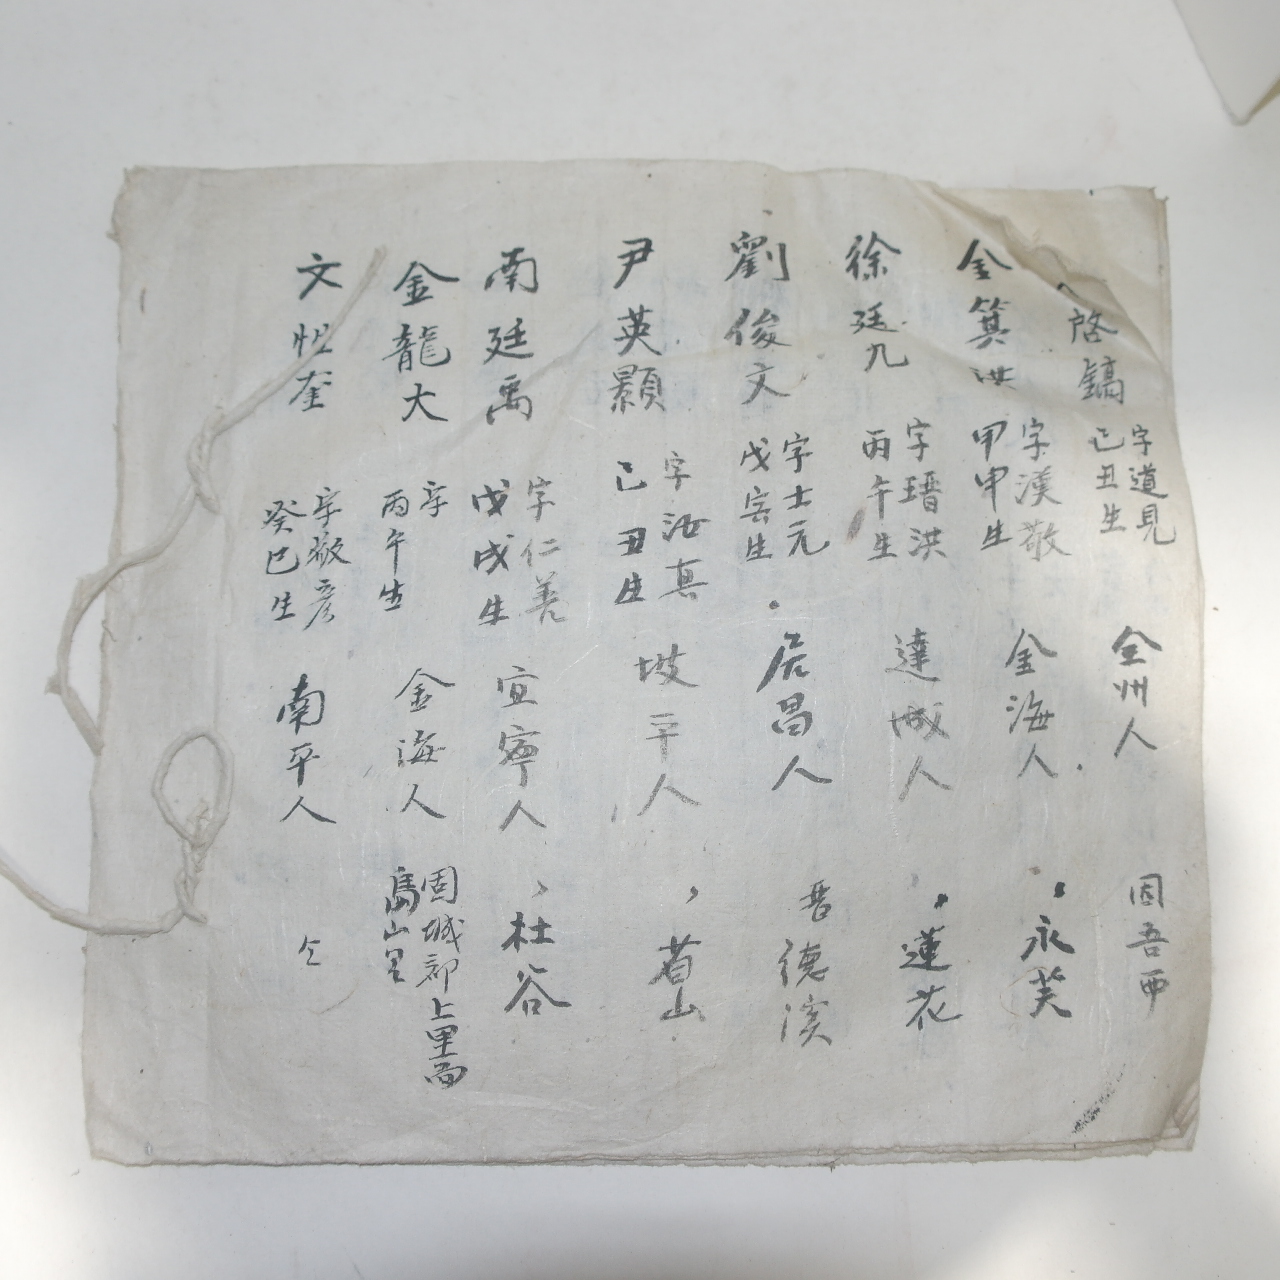 啓鎬 字道見 己丑生 全州人 固吾西
金箕洪 字漢敬 甲申生 金海人 永芙
徐廷九 字瑨洪 丙午生 達城人 蓮花
劉俊文 字士元 戊寅生 居昌人 晋德溪
尹英顯 字汝真 己丑生 坡平人 省山
南廷禹 字仁善 戊戌生 宜寧人 杜谷
金龍大 字 丙午生 金海人 固城郡上里面 山里
文 奎 字敬彦 癸巳生 南平人 仝